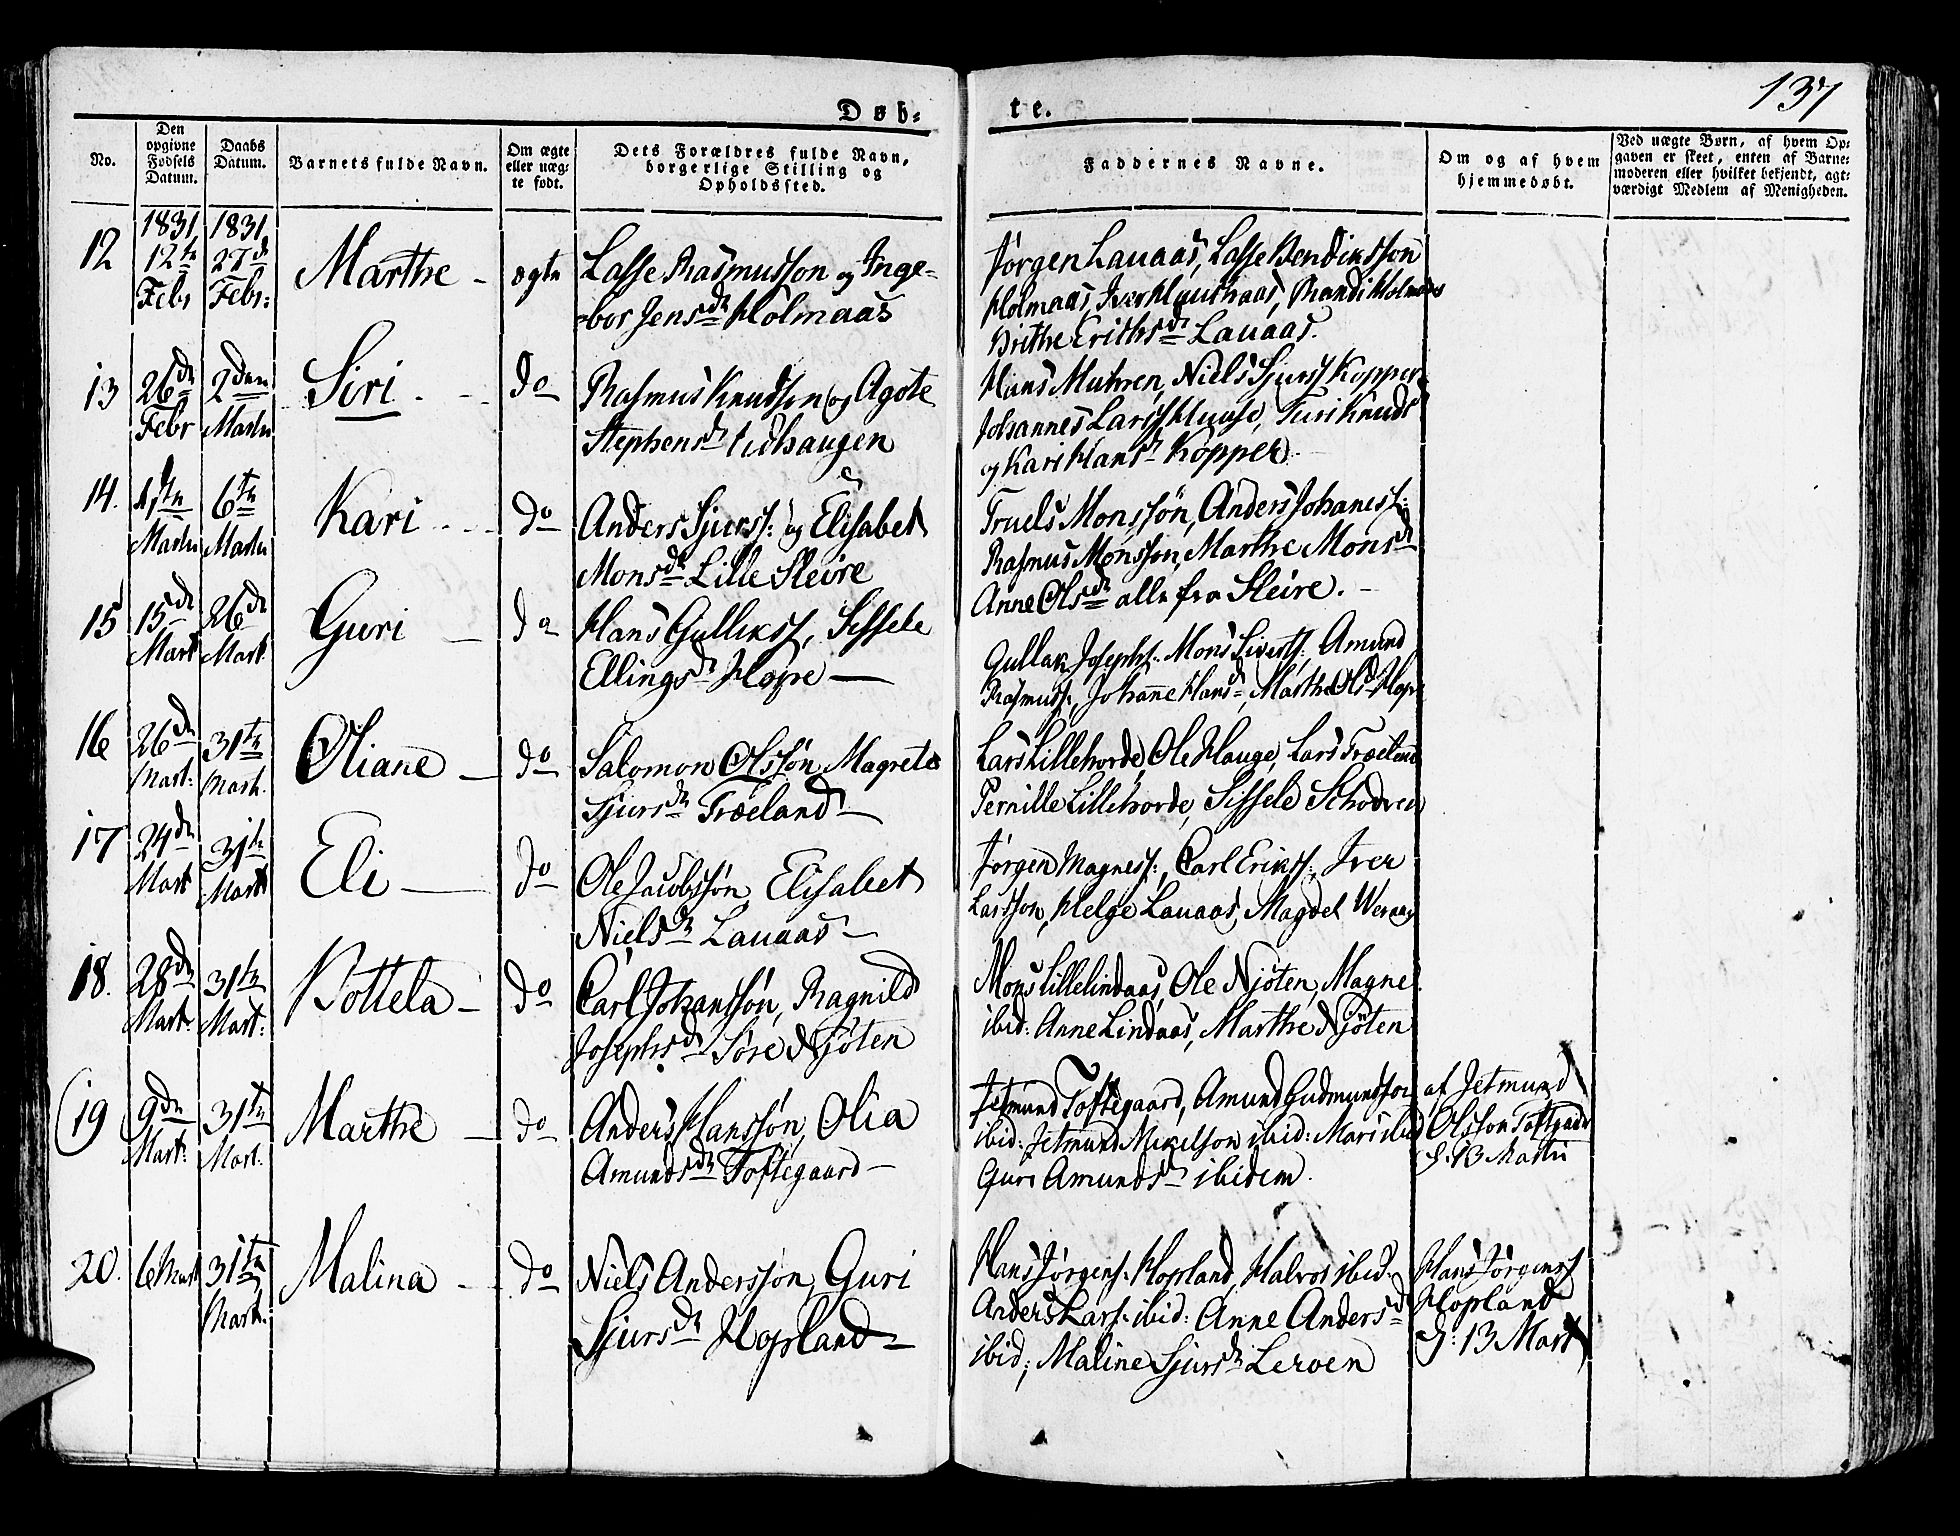 137
Døb-
te.
No.
Den opgivne Fødsels Datum.
Daabs Datum.
Barnets fulde Navn.
Om ægte eller uæg- te født.
Dets Forældres fulde Navn, borgerlige Stilling og Opholdssted.
Faddernes Navne.
Om og af hvem hjemmedøbt.
Ved uægte Børn, af hvem Op- gaven er skeet, enten af Barne- moderen eller hvilket bekjendt, agt- værdigt Medlem af Menigheden.
12
1831
12te
Febr
1831
27de
Febr:
Marthe
ægte
Lasse Rasmusson og Inge-
bor Jensdr Holmaas
Jørgen Lauaas, Lasse Bendiksson
Holmaas, Iver Randi Holmaas
Brithe Erichsdr Lauaas.
13
26de
Febr
2den
Martii
Siri
do
Rasmus Knudson og Agote
Stephensdr
Hans Muhren, Niels Sjurss Kopper
Johannes Larss Turi Knudsdr
og Kari Hansdr Kopper
14.
4de
Martii
6te
Martii
Kari
do
Anders Sjurss: og Elisabet
Monsdr Lille Sleire
Truels Monssøn, Anders Johaness:
Rasmus Monsson, Marthe Monsdr
Anne Olsdr alle fra Sleire.
15
15de
Mart
26de
Mart
Guri
do
Hans Gulliks, Sissele
Ellingsdr Hope
Gullak Josephs. Mons Siverts: Amund
Rasmuss, Johanne Hansdr, Marthe Olsdr Hope
16
26de
Mart:
31te
Mart.
Oliane
do
Salomon Olssøn Magrete
Sjursdr Træland
Lars Lillehorde, Ole Hauge, Lars Træland
Pernille Lillehorde, Sissele
17
24de
Mart
31te
Mart
Eli
do
Ole Jacobssøn, Elisabet
Nielsdr Lauaas
Jørgen Magness:, Carl Erikss:, Iver
Larsson, Helge Lauaas, Magdel
18.
28de
Mart:
31te
Mart:
Bottela
do
Carl Johanssøn, Ragnild
Josephsdr Søre Njøten
Mons Lillelindaas, Ole Njøten, Magne
ibid: Anne Lindaas, Marthe Njøten
19
9de
Mart:
31te
Mart:
Marthe
do
Anders Hanssøn, Olia
Amundsdr Toftegaard
Jetmund Toftegaard, Amund Gudmundson
ibid: Jetmund Mikelson ibid: Mari ibid
Guri Amundsdr ibidem.
af Jetmund
Olsson Toftgaard
d. 13 Martii
20.
6 Mart
31te
Mart.
Malina
do
Niels Andersson, Guri
Sjursdr Hopland
Hans Jørgens. Hopland, Halvor ibid.
Anders Lars. ibid: Anne Andersdr
ibid; Maline Sjursdr Leroen
Hans Jørgens
Hopland
d: 13 Mart